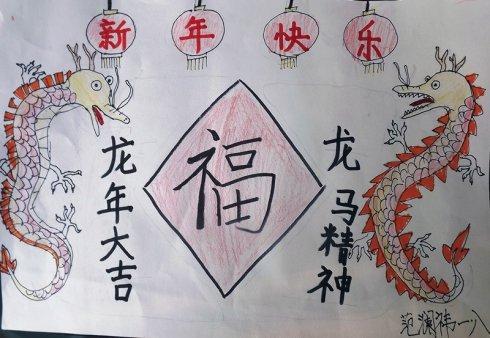 新年快乐
龙年大吉
福
龙马精神
范澜一八